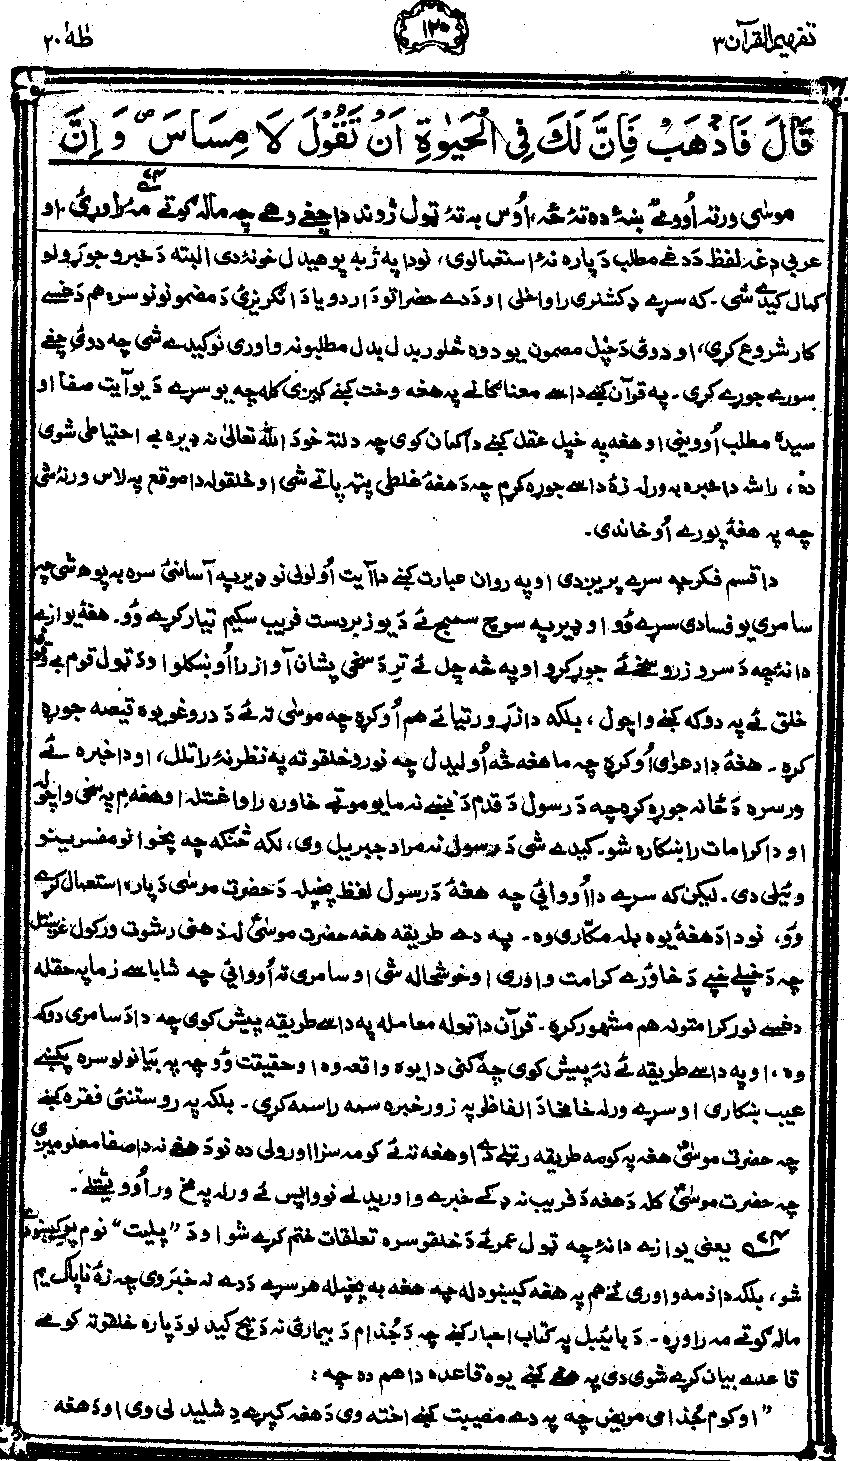 تفهیم القرآن ۳
۱۲۰
طٰهٰ ۲۰
قَالَ فَاذْهَبْ فَاِنَّ لَكَ فِى الْحَيٰوةِ اَنْ تَقُوْلَ لَا مِسَاسَ ۪ وَ اِنَّ
موسٰی ورته اُووے ښۀ ده تۀ ځه، اُوس به تۀ ټول ژوند دا چغے وهے چه ماله ګوتے مۀ راوړئ، او
عربی دغه لفظ د دغے مطلب دپاره نۀ استعمالوی، نو دا په ژبه پوهیدل خو نۀ دی البته د خبرو جوړولو
کمال کیدے شی. که سړے ډکشنری راواخلی او د دے حضراتو د اردو یا د انګریزئ د مضمونونو سره هم دغسے
کار شروع کړی، او دوئ د خپل مضمون یو دوه څلور بدل بدل مطلبونه واوری نو کیدے شی چه دوئ چغے
سورے جوړے کړی. په قرآن کښے داسے معنا ګانے په هغه وخت کښے کیږی کله چه یو سړے د یو آیت صفا او
سیده مطلب اُووینی او هغه په خپل عقل کښے دا ګمان کوی چه دلته خو د الله تعالیٰ نه ډیره بے احتیاطی شوی
ده، راشه دا خبره به ورله زۀ داسے جوړه کړم چه د هغۀ غلطی پټه پاتے شی او خلقو له دا موقع په لاس ورنۀ شی
چه په هغۀ پورے اُوخاندی.
دا قسم فکر چه سړے پریږدی او په روان عبارت کښے دا آیت اُولولی نو ډیر په آسانئ سره به پوهه شی چه
سامری یو فسادی سړے وُو او ډیر په سوچ سمجھ ئے د یو زبردست فریب سکیم تیار کړے وُو. هغۀ یوازے
دا نۀ چه د سرو زرو سخے ئے جوړ کړو او په څه چل ئے تر د سخی پشان آواز را اُوښکلو او د ټول قوم بے
خلق ئے په دوکه کښے واچول، بلکه دا زړه ورتیا ئے هم اُوکړه چه موسٰی ته ئے د دروغو یوه قیصه جوړه
کړه. هغۀ دا دعوٰی اُوکړه چه ما هغه څه اُولیدل چه نورو خلقو ته په نظر نۀ راتلل، او دا خبره ئے
ورسره د ځانه جوړه کړه چه د رسول د قدم د نښے نه ما یو موټے خاوره راواغستله او هغه م په سخی واچوله
او دا کرامات را ښکاره شو. کیدے شی د رسول نه مراد جبریل وی، لکه څنګه چه پخوانو مفسرینو
وئیلی دی. لیکن که سړے دا اُووائی چه هغۀ د رسول لفظ پخپله د حضرت موسٰی دپاره استعمال کړے
وُو، نو دا د هغۀ یوه بله مکّاری وه. په دے طریقه هغه حضرت موسٰیؑ له ذهنی رشوت ورکول غوښتل
چه د خپلے خپے د خاورے کرامت واوری او خوشحاله شی او سامری ته اُووائی چه شاباسے زما په حقله
دغسے نور کرامتونه هم مشهور کړه. قرآن دا ټوله معامله په داسے طریقه پیش کوی چه دا د سامری دوکه
وه، او په داسے طریقه ئے نۀ پیش کوی چه ګنی دا یوه واقعه وه او حقیقت وُو چه په بیانولو سره پکښے
عیب ښکاری او سړے ورله خامخا د الفاظو په زور خبره سمه راسمه کړی. بلکه په روستنئ فقره کښے
چه حضرت موسٰیؑ هغه په کومه طریقه رټلے دے او هغه ته ئے کومه سزا اورولی ده نو د هغے نه دا صفا معلومیږی
چه حضرت موسٰیؑ کله د هغه د فریب نه ډکے خبرے واوریدلے نو واپس ئے ورله په مخ وراُوویشتلے.
یعنی یوازے دا نۀ چه ټول عمر ئے د خلقو سره تعلقات ختم کړے شو او د "پلیت" نوم پرے کیښودے
شو، بلکه دا ذمه واری ئے هم په هغه کیښودله چه هغه به پخپله هر سړے د دے نه خبروی چه زۀ ناپاک یم
ماله ګوتے مه راوړه. د بائیبل په کتاب احبار کښے چه د جُذام د بیمارئ نه د بچ کیدلو دپاره خلقو ته کومے
قاعدے بیان کړے شوی دی په هغے کښے یوه قاعده دا هم ده چه:
"او کوم جُذامی مریض چه په دے مصیبت کښے اخته وی د هغه کپړے دِ شلیدلی وی او د هغه